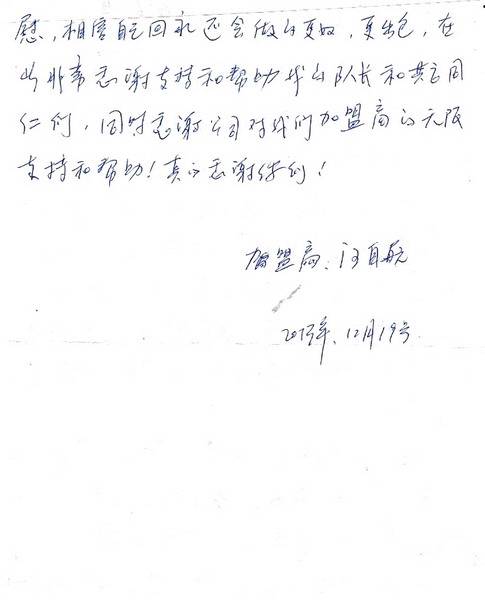 慰，相信自己回永还会做的更好，更出色，在
此非常感谢支持和帮助我的队长和其它同
仁们，同时感谢公司对我们加盟商的无限
支持和帮助！真的感谢你们！
加盟商：自航
年、12月19号